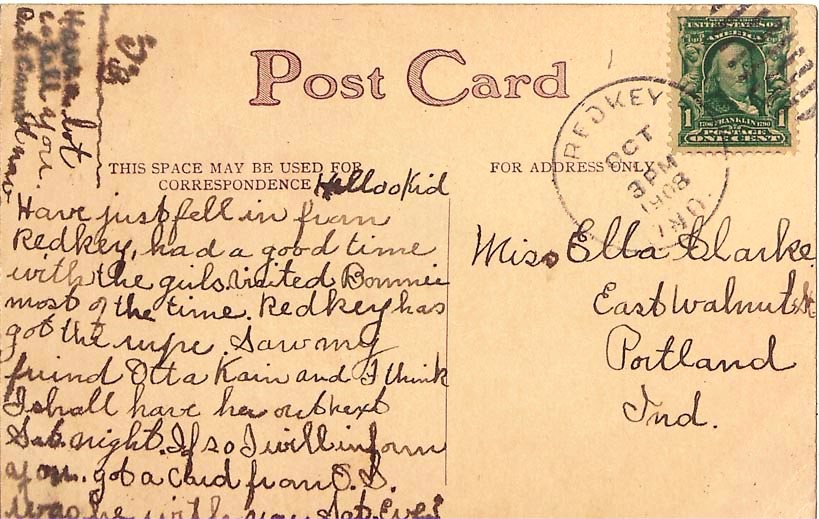 Post Card
THIS SPACE MAY BE USED FOR
CORRESPONDENCE
FOR ADDRESS ONLY
UNITED STATES OF
AMERICA
1706 FRANKLIN 1790
1 1
POSTAGE
ONE CENT
REDKEY
OCT
3 PM
1908
IND
Hellookid
Have just fell in from
Redkey, had a good time
with the girls. Visited Bonnie
most of the time. Redkey has
got the
Saw my
friend Otta Kain and I think
I shall have her out next
Sat. night. If so I will inform
you. got a card from O.S.
was he with you Sat. Eve?
Have a lot
to tell you.
Miss Ella Clarke
East Walnut St.
Portland
Ind.